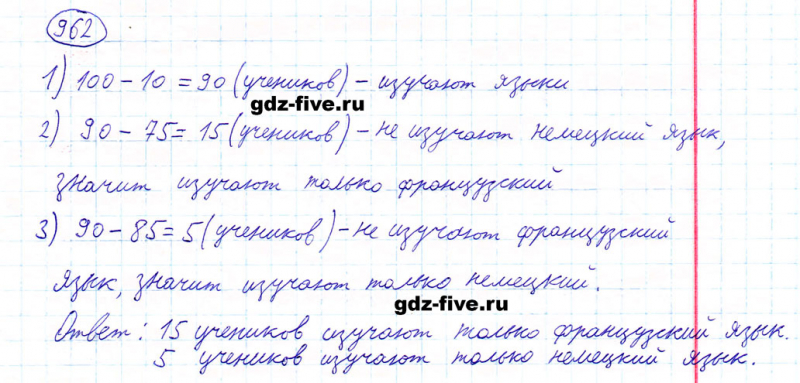 962
1) 100 - 10 = 90 (учеников) - изучают языки
gdz-five.ru
2) 90 - 75 = 15 (учеников) - не изучают немецкий язык,
значит изучают только французский
3) 90 - 85 = 5 (учеников) - не изучают французский
язык, значит изучают только немецкий.
gdz-five.ru
Ответ: 15 учеников изучают только французский язык.
5 учеников изучают только немецкий язык.